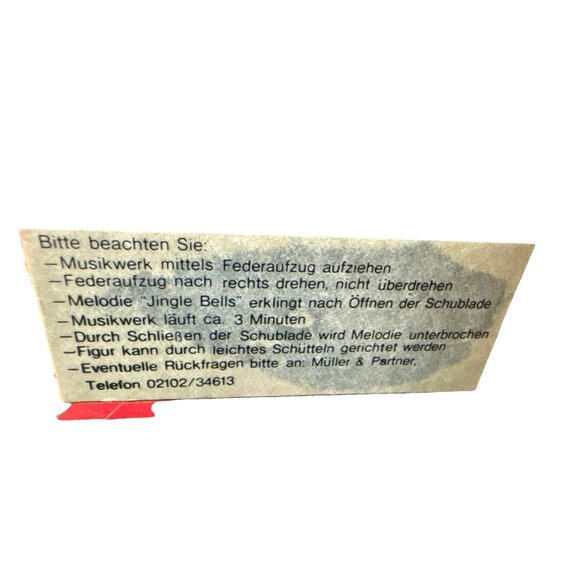 Bitte beachten Sie:
—Musikwerk mittels Federaufzug aufziehen
—Federaufzug nach rechts drehen, nicht überdrehen
—Melodie "Jingle Bells" erklingt nach Öffnen der Schublade
—Musikwerk läuft ca. 3 Minuten
—Durch Schließen der Schublade wird Melodie unterbrochen
—Figur kann durch leichtes Schütteln gerichtet werden
—Eventuelle Rückfragen bitte an: Müller & Partner,
Telefon 02102/34613